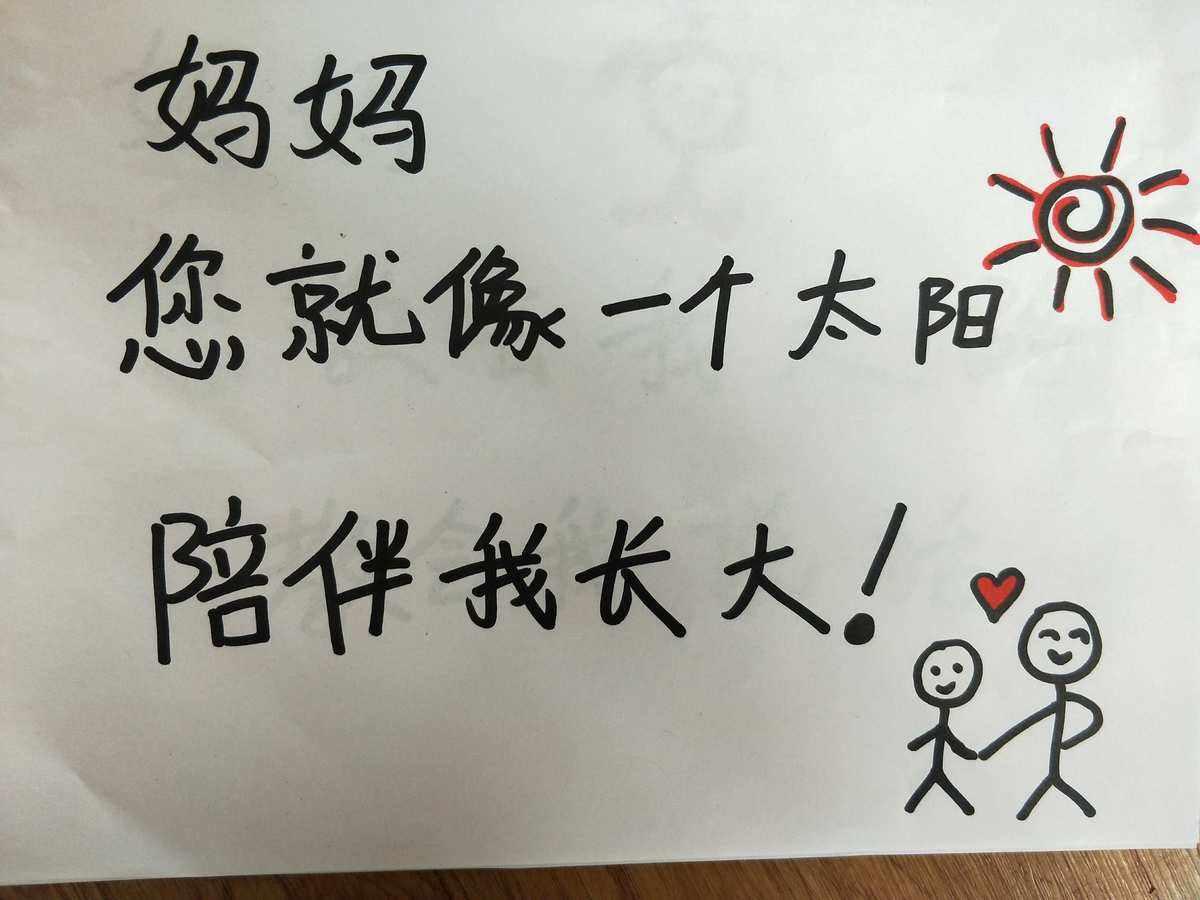 妈妈
您就像一个太阳
陪伴我长大！